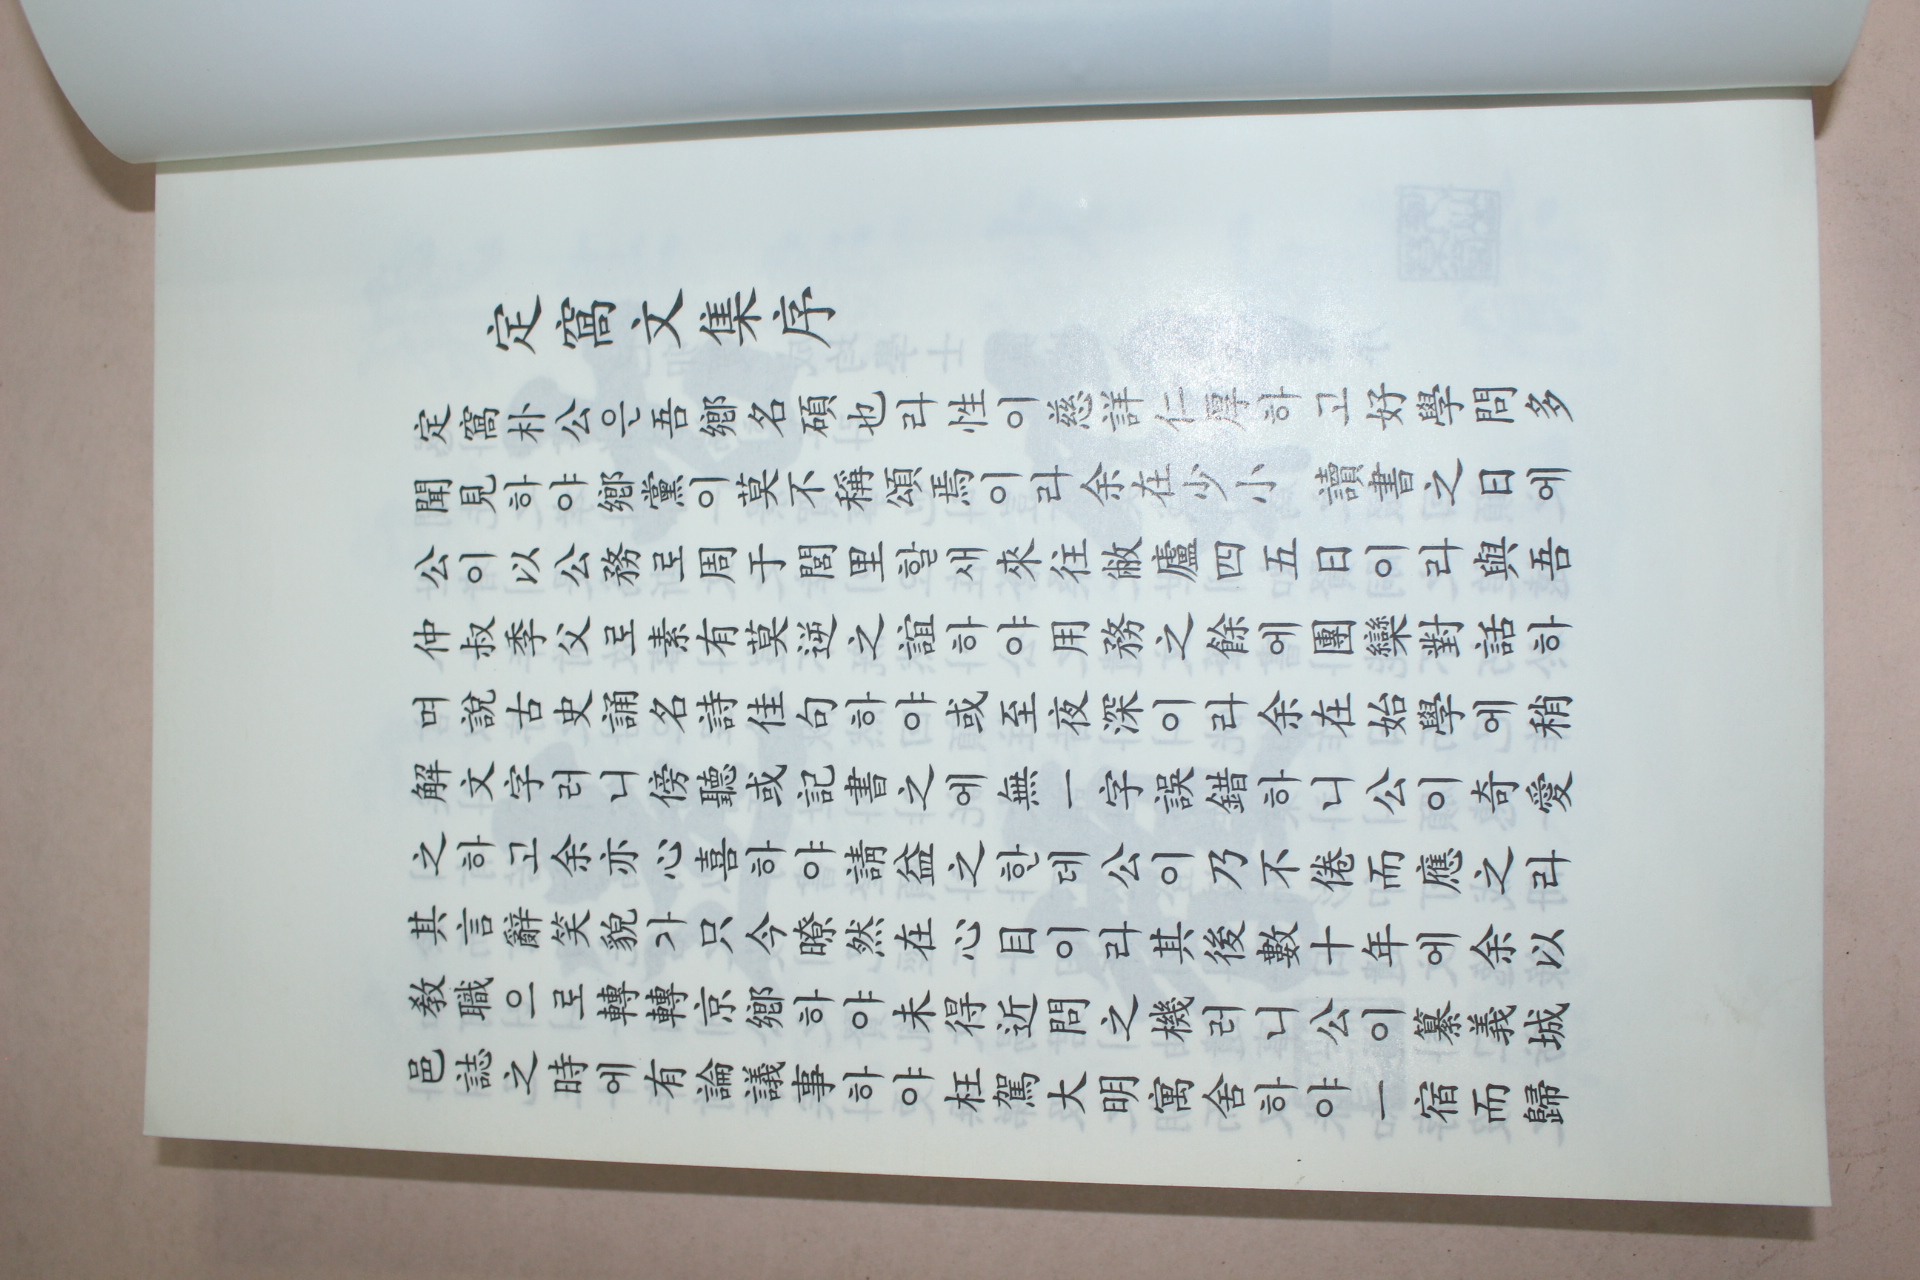 定窩文集序
定窩朴公은吾鄕名碩也라性이慈詳仁厚하고好學問多
聞見하야鄕黨이莫不稱頌焉이라余在少小 讀書之日에
公이以公務로周于閭里할새來往敝廬四五日이라與吾
仲叔季父로素有莫逆之誼하야用務之餘에團欒對話하
며說古史誦名詩佳句하야或至夜深이라余在始學에稍
解文字러니傍聽或記書之에無一字誤錯하니公이奇愛
之하고余亦心喜하야請益之한대公이乃不倦而應之라
其言辭笑貌가只今瞭然在心目이라其後數十年에余以
敎職으로轉轉京鄕하야未得近問之機러니公이纂義城
邑誌之時에有論議事하야枉駕大明寓舍하야一宿而歸